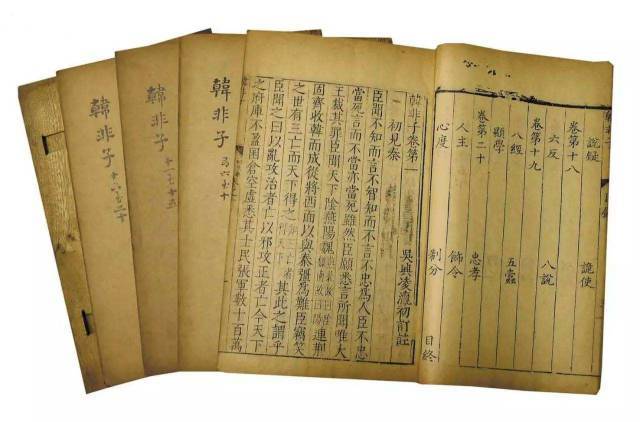 說疑 詭使
卷第十八
六反 八說
卷第十九
八經 五蠹
顯學
卷第二十 忠孝
人主 飾令
心度 制分 目終
韓非子卷第一
吳興凌瀛初訂註
初見秦
臣聞不知而言不智知而不言不忠為人臣不忠
當死言而不當亦當死雖然臣願悉言所聞唯大
王裁其罪臣聞天下陰燕陽魏連荆
固齊收韓而成從將西面以與秦彊為難臣竊笑
之世有三亡而天下得之其此之謂乎
臣聞之曰以亂攻治者亡以邪攻正者亡今天下
之府庫不盈囷倉空虛悉其士民張軍數十百萬
韓非子
六至十
韓非子
十一至十五
韓非子
十六至二十